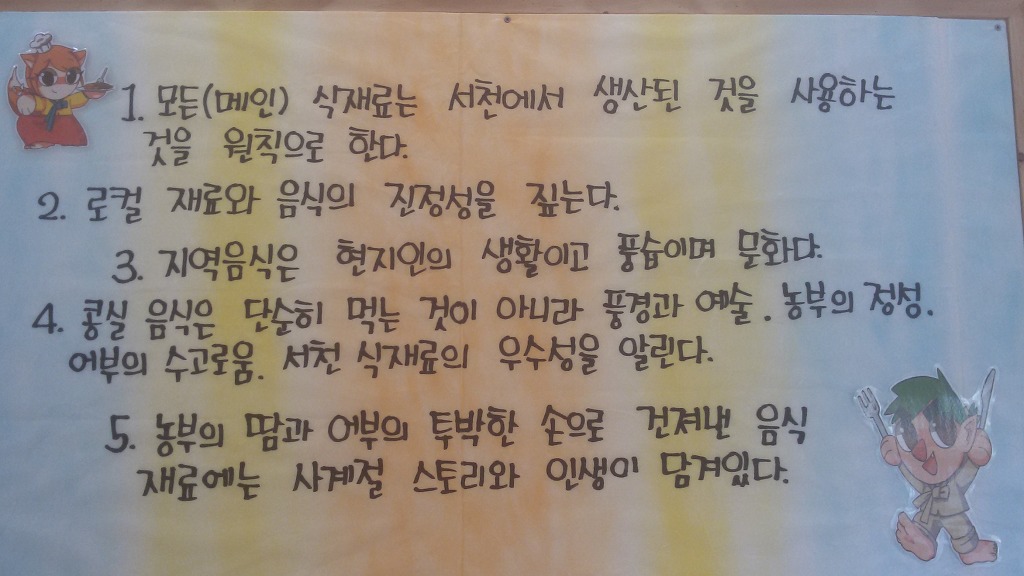 1. 모든(메인) 식재료는 서천에서 생산된 것을 사용하는
것을 원칙으로 한다.
2. 로컬 재료와 음식의 진정성을 짚는다.
3. 지역음식은 현지인의 생활이고 풍습이며 문화다.
4. 콩실 음식은 단순히 먹는 것이 아니라 풍경과 예술. 농부의 정성.
어부의 수고로움. 서천 식재료의 우수성을 알린다.
5. 농부의 땀과 어부의 투박한 손으로 건져낸 음식
재료에는 사계절 스토리와 인생이 담겨있다.